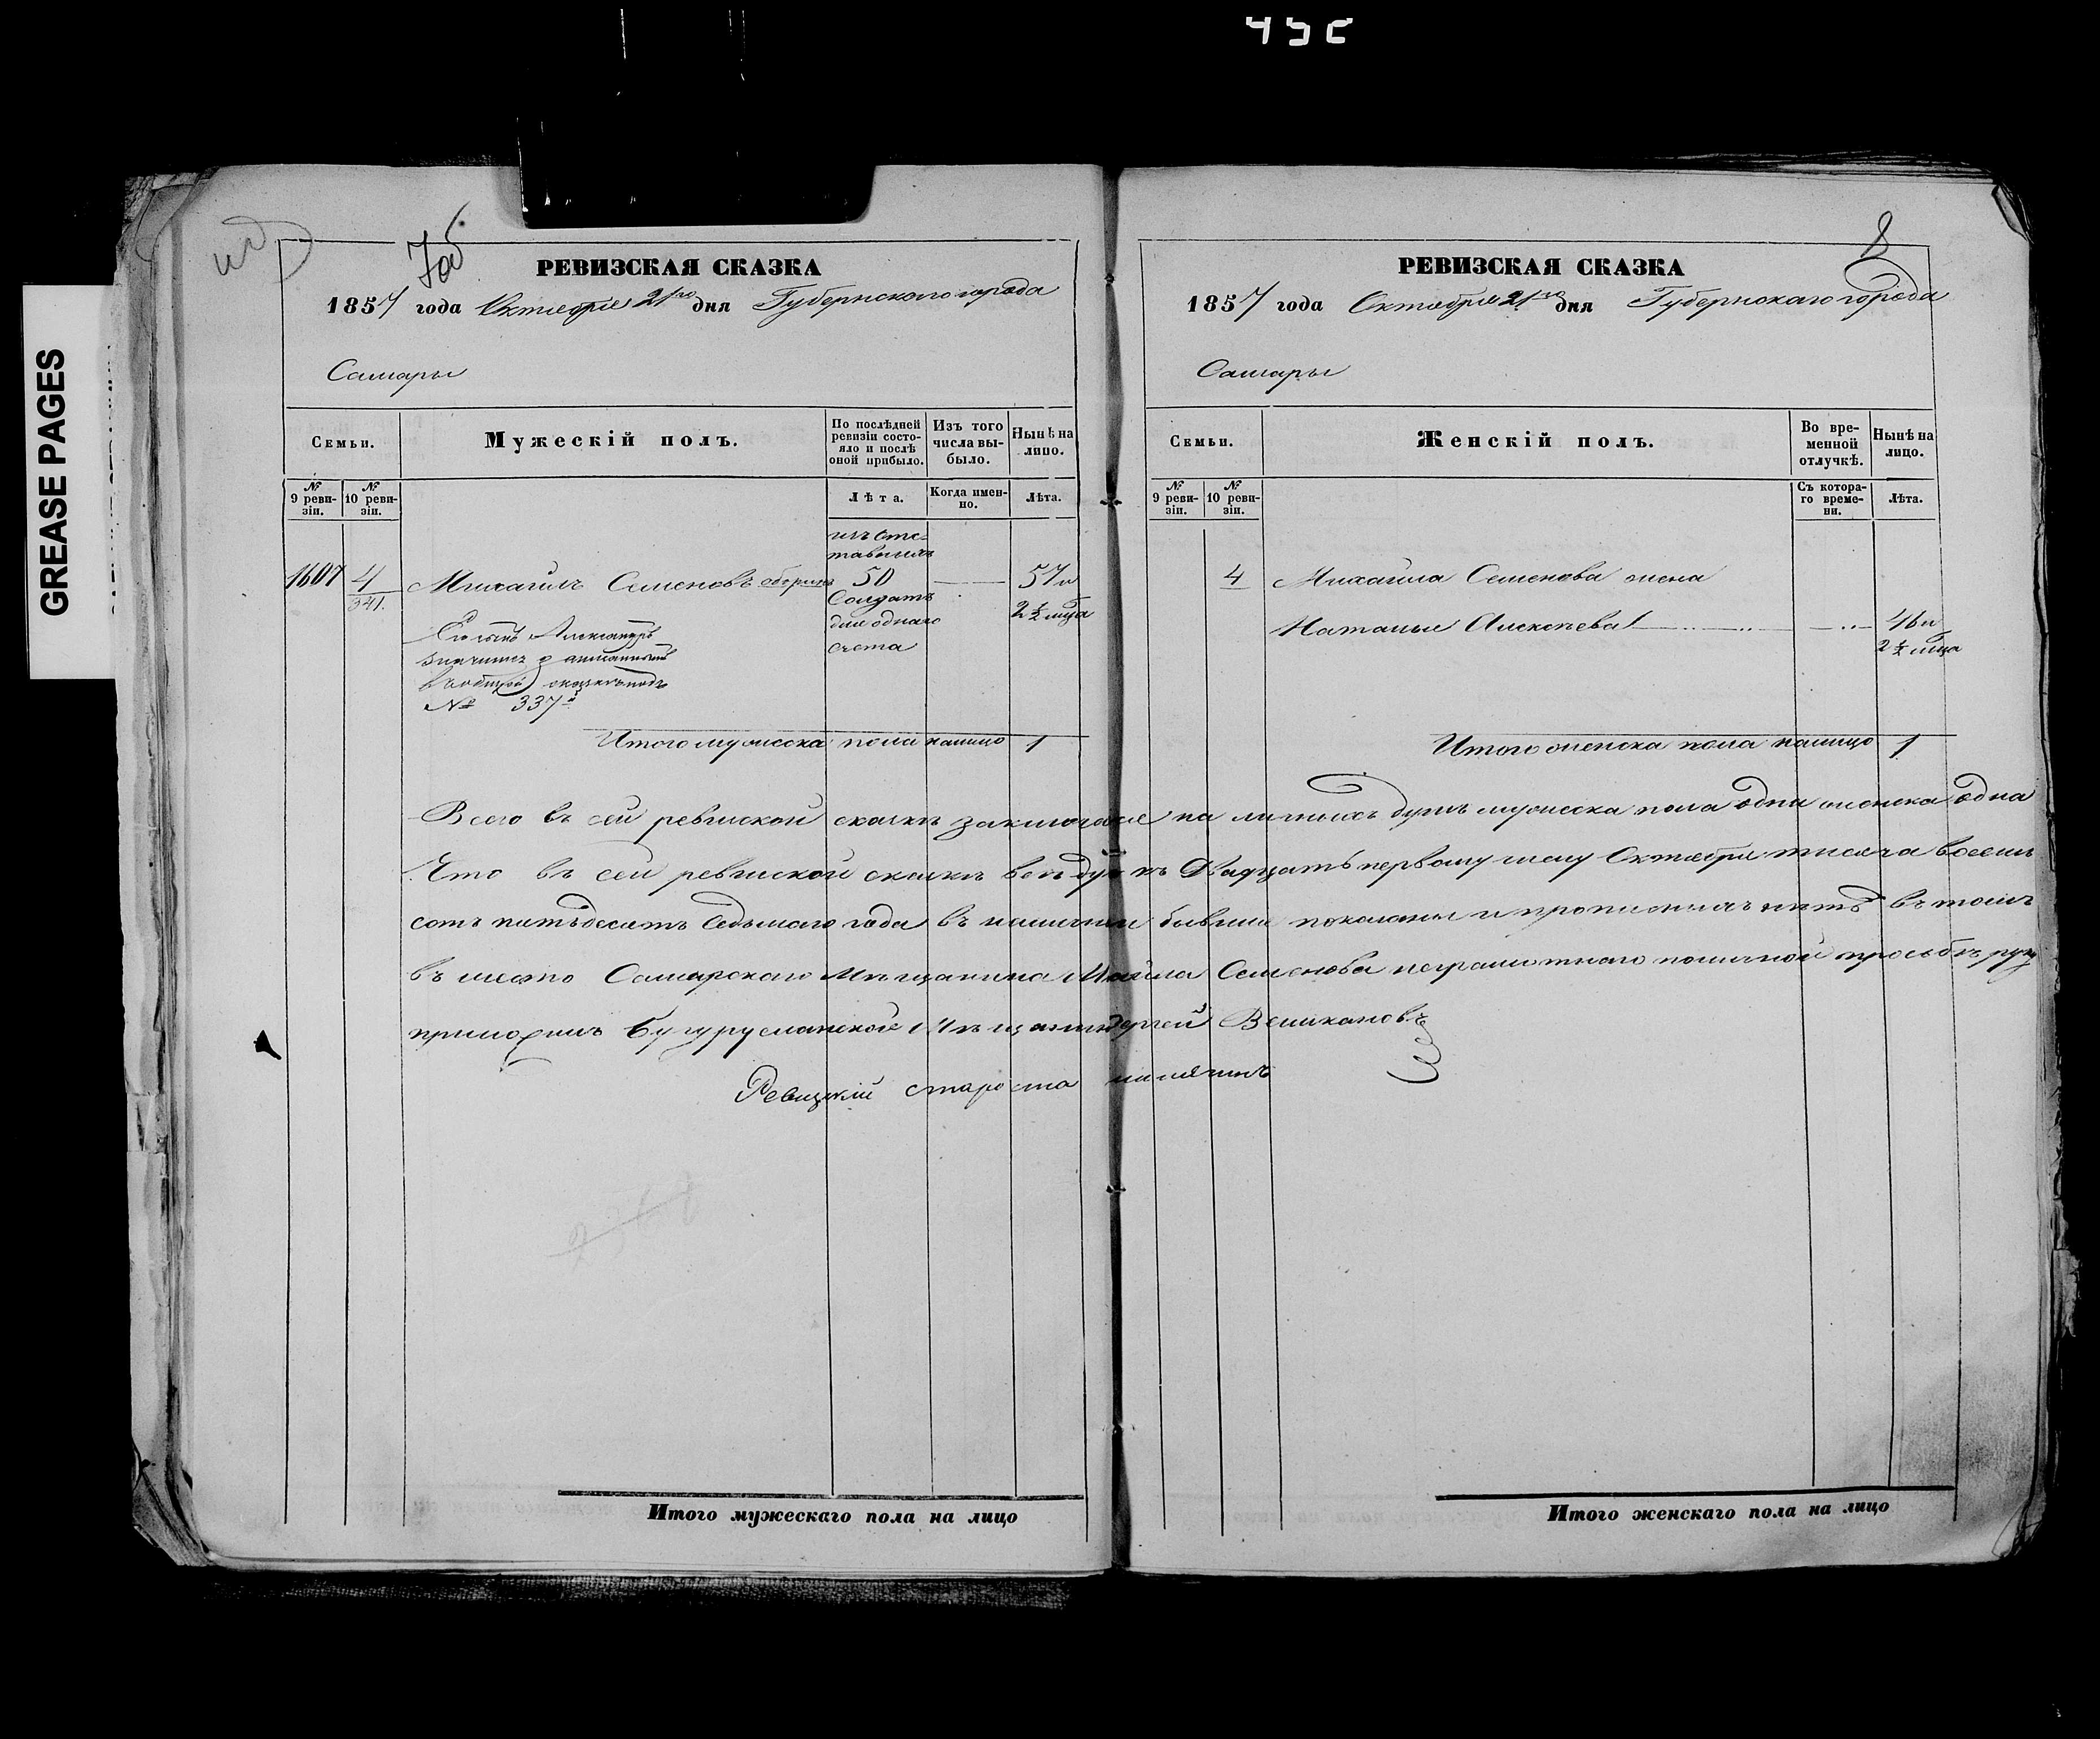 452
GREASE PAGES
7об
РЕВИЗСКАЯ СКАЗКА
1857 года Октября 21го дня Губернскаго города
Самары
Семьи.
Мужескій полъ.
По послѣдней ревизіи состояло и послѣ оной прибыло.
Изъ того числа выбыло.
Нынѣ на лицо.
№ 9 ревизіи.
№ 10 ревизіи.
Лѣта.
Когда именно.
Лѣта.
изъ отставныхъ
1607 4 Михаилъ Семеновъ 50 57 и
341. Солдатъ 2 1/2 мца
Его сынъ Александръ для однаго
счета
№ 337й
Итого мужеска пола налицо 1
8
РЕВИЗСКАЯ СКАЗКА
1857 года Октября 21го дня Губернскаго города
Самары
Семьи.
Женскій полъ.
Во временной отлучкѣ.
Нынѣ на лицо.
№ 9 ревизіи.
№ 10 ревизіи.
Съ котораго времени.
Лѣта.
4 Михаила Семенова жена
Наталья Алексѣева 46 и
2 1/2 мца
Итого женска пола налицо 1
Всего въ сей ревизской сказкѣ заключается на личныхъ душъ мужеска пола одна женска одна
Что въ сей ревизской сказкѣ всѣ души къ двадцать первому числу Октября тысяча восемь
сотъ пятьдесятъ седьмаго года въ наличіи бывшія показаны и прописныхъ нѣтъ въ томъ
въ место Самарскаго Мещанина Михайла Семенова неграмотнаго по личной прозьбѣ руку
приложилъ Бугурусланской Мещанинъ Сергей Великановъ
Ревизскій староста
Итого мужескаго пола на лицо
Итого женскаго пола на лицо